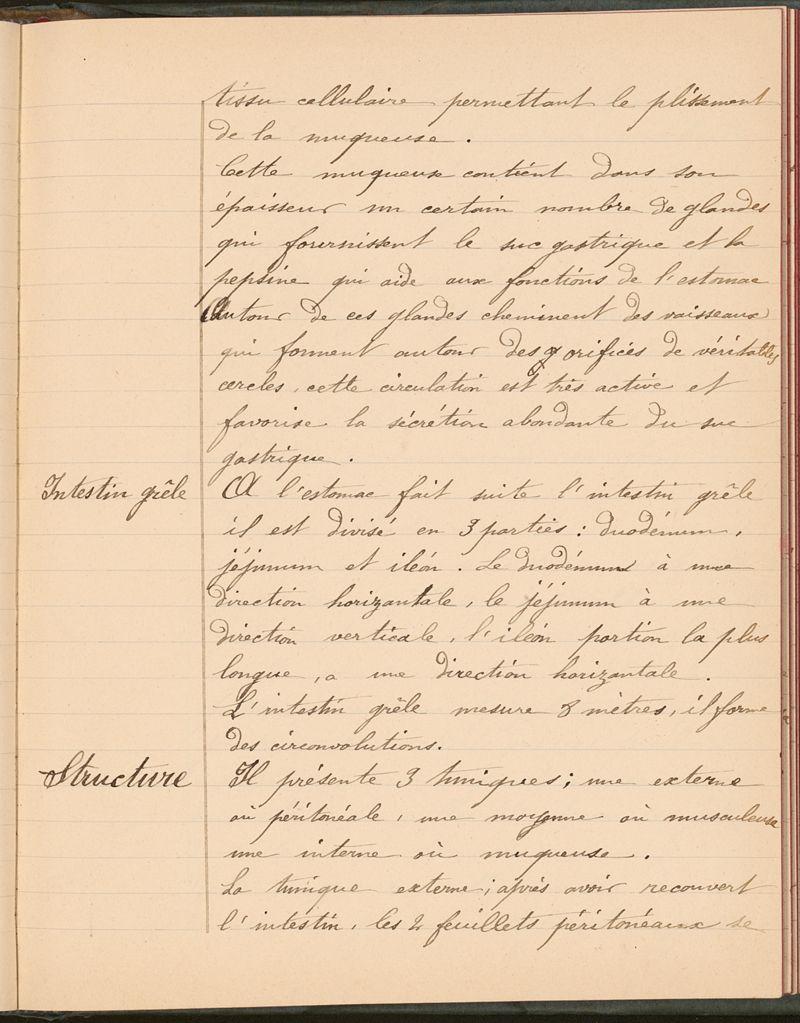 tissu cellulaire permettant le plissement
de la muqueuse.
Cette muqueuse contient dans son
épaisseur un certain nombre de glandes
qui fournissent le suc gastrique et la
pepsine qui aide aux fonctions de l'estomac
Autour de ces glandes cheminent des vaisseaux
qui forment autour des orifices de véritables
cercles, cette circulation est très active et
favorise la sécrétion abondante du suc
gastrique.
Intestin grêle A l'estomac fait suite l'intestin grêle
il est divisé en 3 parties : duodénum,
jéjunum et iléon. Le duodénum à une
direction horizontale, le jéjunum à une
direction verticale, l'iléon portion la plus
longue, a une direction horizontale.
L'intestin grêle mesure 8 mètres, il forme
des circonvolutions.
Structure Il présente 3 tuniques; une externe
où péritonéale, une moyenne où musculeuse
une interne où muqueuse.
La tunique externe; après avoir recouvert
l'intestin, les 2 feuillets péritonéaux se